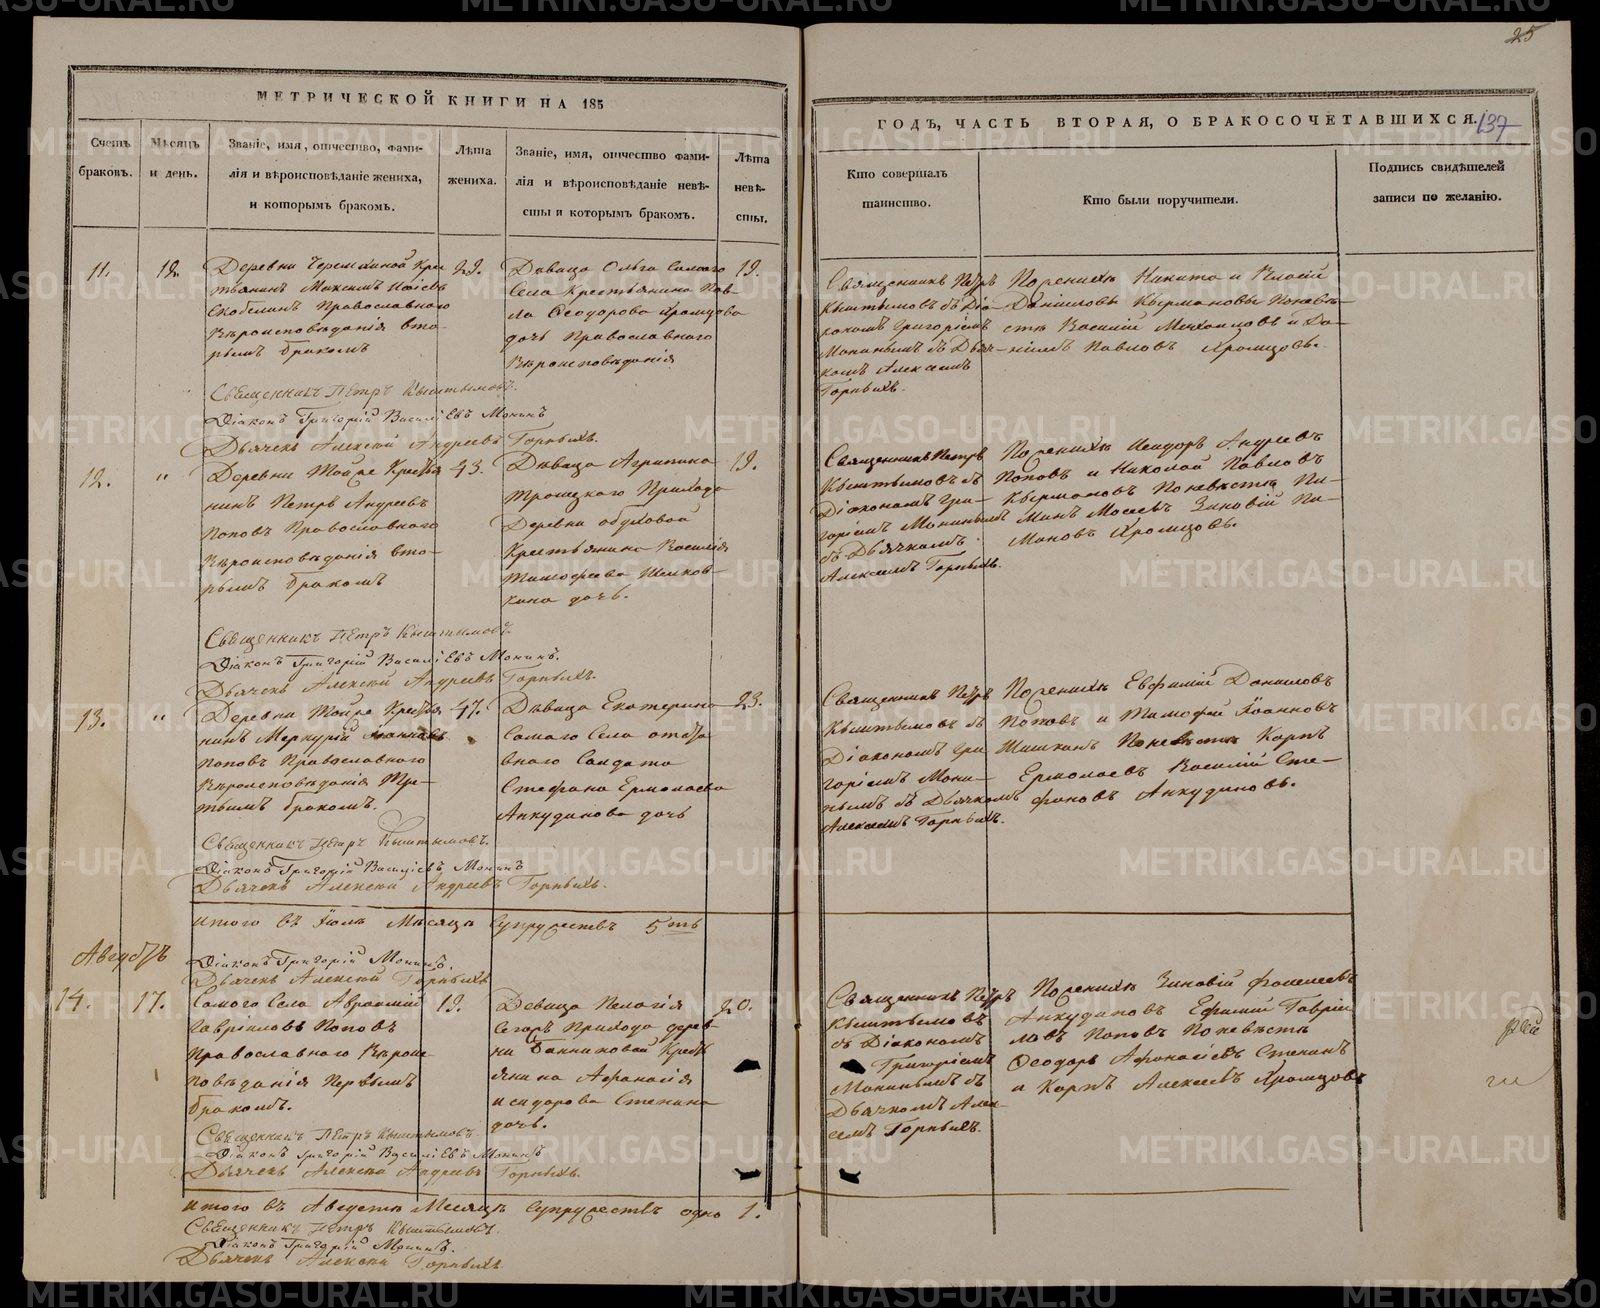 25
137
МЕТРИЧЕСКОЙ КНИГИ НА 185
ГОДЪ, ЧАСТЬ ВТОРАЯ, О БРАКОСОЧЕТАВШИХСЯ.
Счетъ браковъ.
Мѣсяцъ и день.
Званіе, имя, отчество, фами-
лія и вѣроисповѣданіе жениха,
и которымъ бракомъ.
Лѣта
жениха.
Званіе, имя, отчество фами-
лія и вѣроисповѣданіе невѣ-
сты и которымъ бракомъ.
Лѣта
невѣ-
сты.
Кто совершалъ
таинство.
Кто были поручители.
Подпись свидѣтелей
записи по желанію.
11.
19.
Деревни Черемхиной Кре
стьянинъ Максимъ
Скобелинъ Православнаго
Вѣроисповѣданія вто-
рымъ бракомъ
29.
Дѣвица Ольга Самаго
Села Крестьянина Пав
ла Ѳеодорова Храмцова
дочь Православнаго
Вѣроисповѣданія
19.
Священникъ Петръ
Кыштымовъ съ Діа-
кономъ Григоріемъ
Мониныmъ съ Дьяч-
комъ Алексѣемъ
Горныхъ.
По женихѣ Никита и Власій
Даніиловы Кырмановы По невѣ-
стѣ Василій Михаиловъ и Да-
ніилъ Павловъ Храмцовъ.
Священникъ Петръ Кыштымовъ.
Діаконъ Григорій Василіевъ Монинъ
Дьячекъ Алексѣй Андреевъ Горныхъ.
12.
"
Деревни Крестья
нинъ Петръ Андреевъ
Поповъ Православнаго
Вѣроисповѣданія вто-
рымъ бракомъ
43.
Дѣвица Агрипина
Троицкаго Прихода
Деревни Обуховой
Крестьянина Василія
Тимофеева
дочь.
19.
Священникъ Петръ
Кыштымовъ съ
Діакономъ Гри-
горіемъ Монинымъ
съ Дьячкомъ
Алексѣемъ Горныхъ.
По женихѣ Исидоръ Андреевъ
Поповъ и Николай Павловъ
Кырмановъ По невѣстѣ Пи-
минъ Зиновій Пи-
Храмцовъ.
Священникъ Петръ Кыштымовъ.
Діаконъ Григорій Василіевъ Монинъ.
Дьячекъ Алексѣй Андреевъ Горныхъ.
13.
"
Деревни Крестья
нинъ Меркурій Іоанновъ
Поповъ Православнаго
Вѣроисповѣданія Тре-
тьимъ бракомъ.
47.
Дѣвица Екатерина
Самаго Села
Солдата
Стефана Ермолаева
Анкудинова дочь
23.
Священникъ Петръ
Кыштымовъ съ
Діакономъ Гри
горіемъ Мони-
нымъ съ Дьячкомъ
Алексѣемъ Горныхъ.
По женихѣ Евфимій Даниловъ
Поповъ и Тимофей Іоанновъ
По невѣстѣ Карпъ
Ермолаевъ Василій Сте-
фановъ Анкудиновъ.
Священникъ Петръ Кыштымовъ.
Діаконъ Григорій Василіевъ Монинъ
Дьячекъ Алексѣй Андреевъ Горныхъ.
Итого въ Іюлѣ Мѣсяцѣ Супружествъ 5ть
Діаконъ Григорій Монинъ.
Дьячекъ Алексѣй Горныхъ
Августъ
14.
17.
Самаго Села Авраамій
Гавріиловъ Поповъ
Православнаго Вѣроис-
повѣданія Первымъ
бракомъ.
19.
Девица Пелагія
Сегожъ Прихода дерев-
ни Банниковой Кресть
янина Афанасія
Исидорова Степина
дочь.
20.
Священникъ Петръ
Кыштымовъ
съ Діакономъ
Григоріемъ
Монинымъ съ
Дьячкомъ Алек-
сѣемъ Горныхъ.
По женихѣ Зиновій
Анкудиновъ Ефимій Гаврiи
ловъ Поповъ По невѣстѣ
Ѳеодоръ Афонасіевъ Степинъ
и Карпъ Алексеевъ Храмцовъ
Священникъ Петръ Кыштымовъ.
Діаконъ Григорій Василіевъ Монинъ
Дьячекъ Алексѣй Андреевъ Горныхъ.
Итого въ Августѣ Месяцѣ Супружествъ одно 1.
Священникъ Петръ Кыштымовъ.
Діаконъ Григорій Монинъ.
Дьячекъ Алексѣй Горныхъ.
METRIKI.GASO-URAL.RU